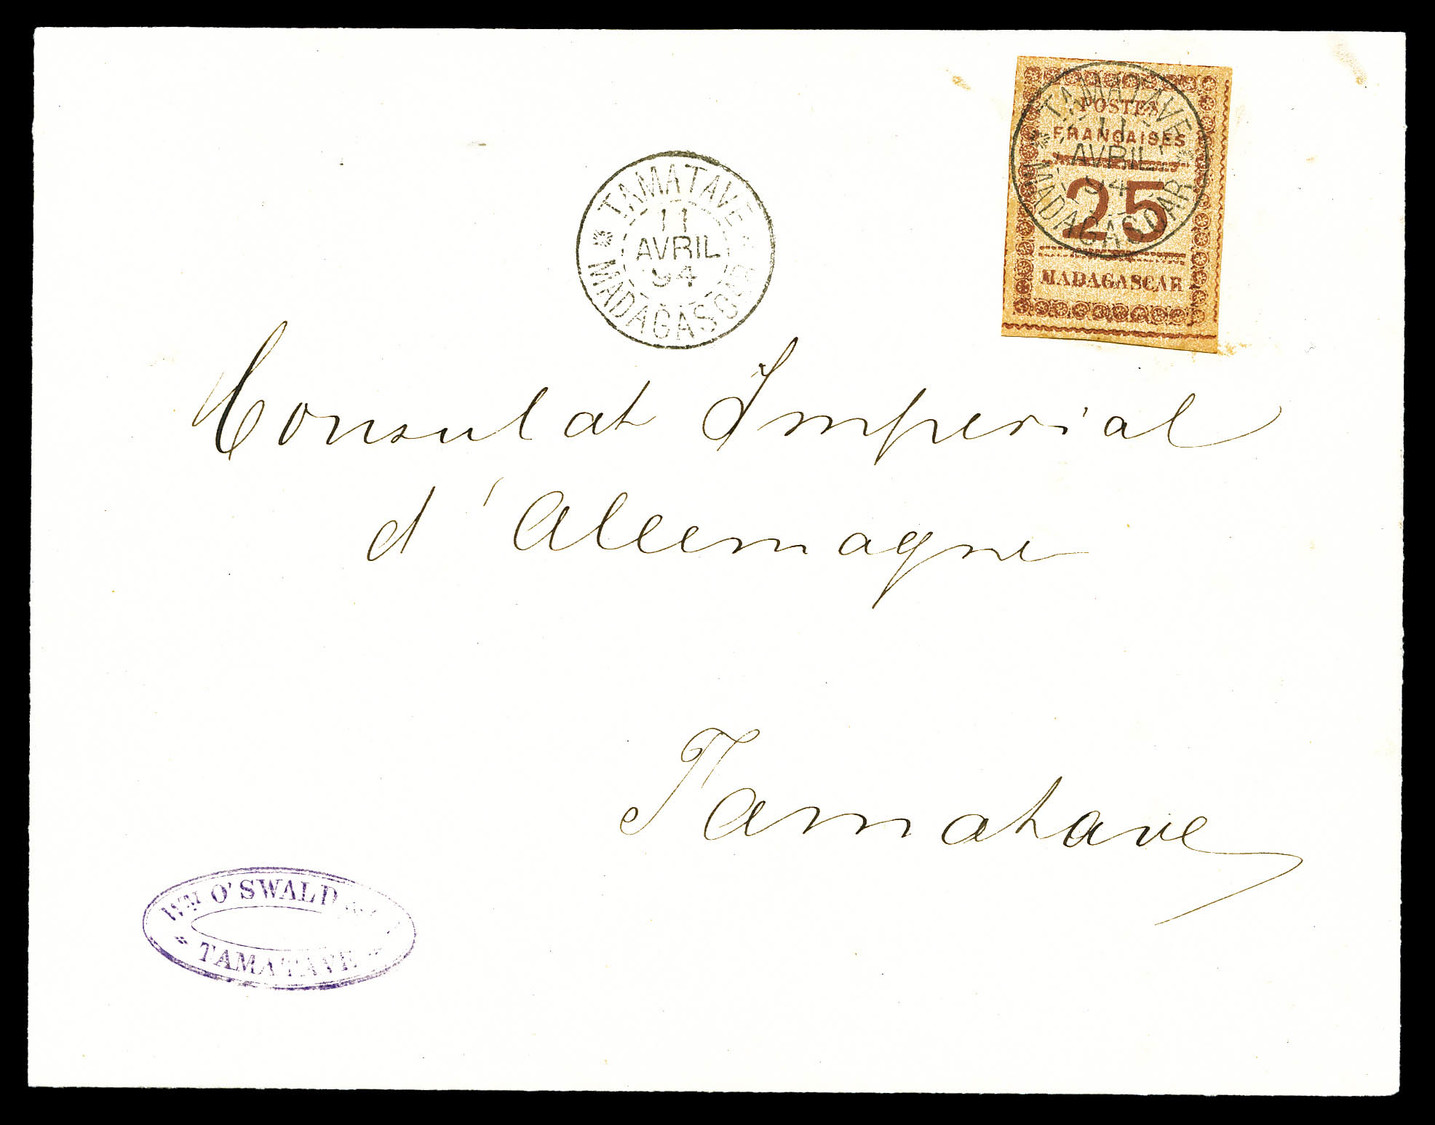 POSTES
FRANÇAISES
25
MADAGASCAR
TAMATAVE
11
AVRIL
94
MADAGASCAR
TAMATAVE
11
AVRIL
94
MADAGASCAR
Consulat Imperial
d'Allemagne
Tamatave
WM O'SWALD
TAMATAVE